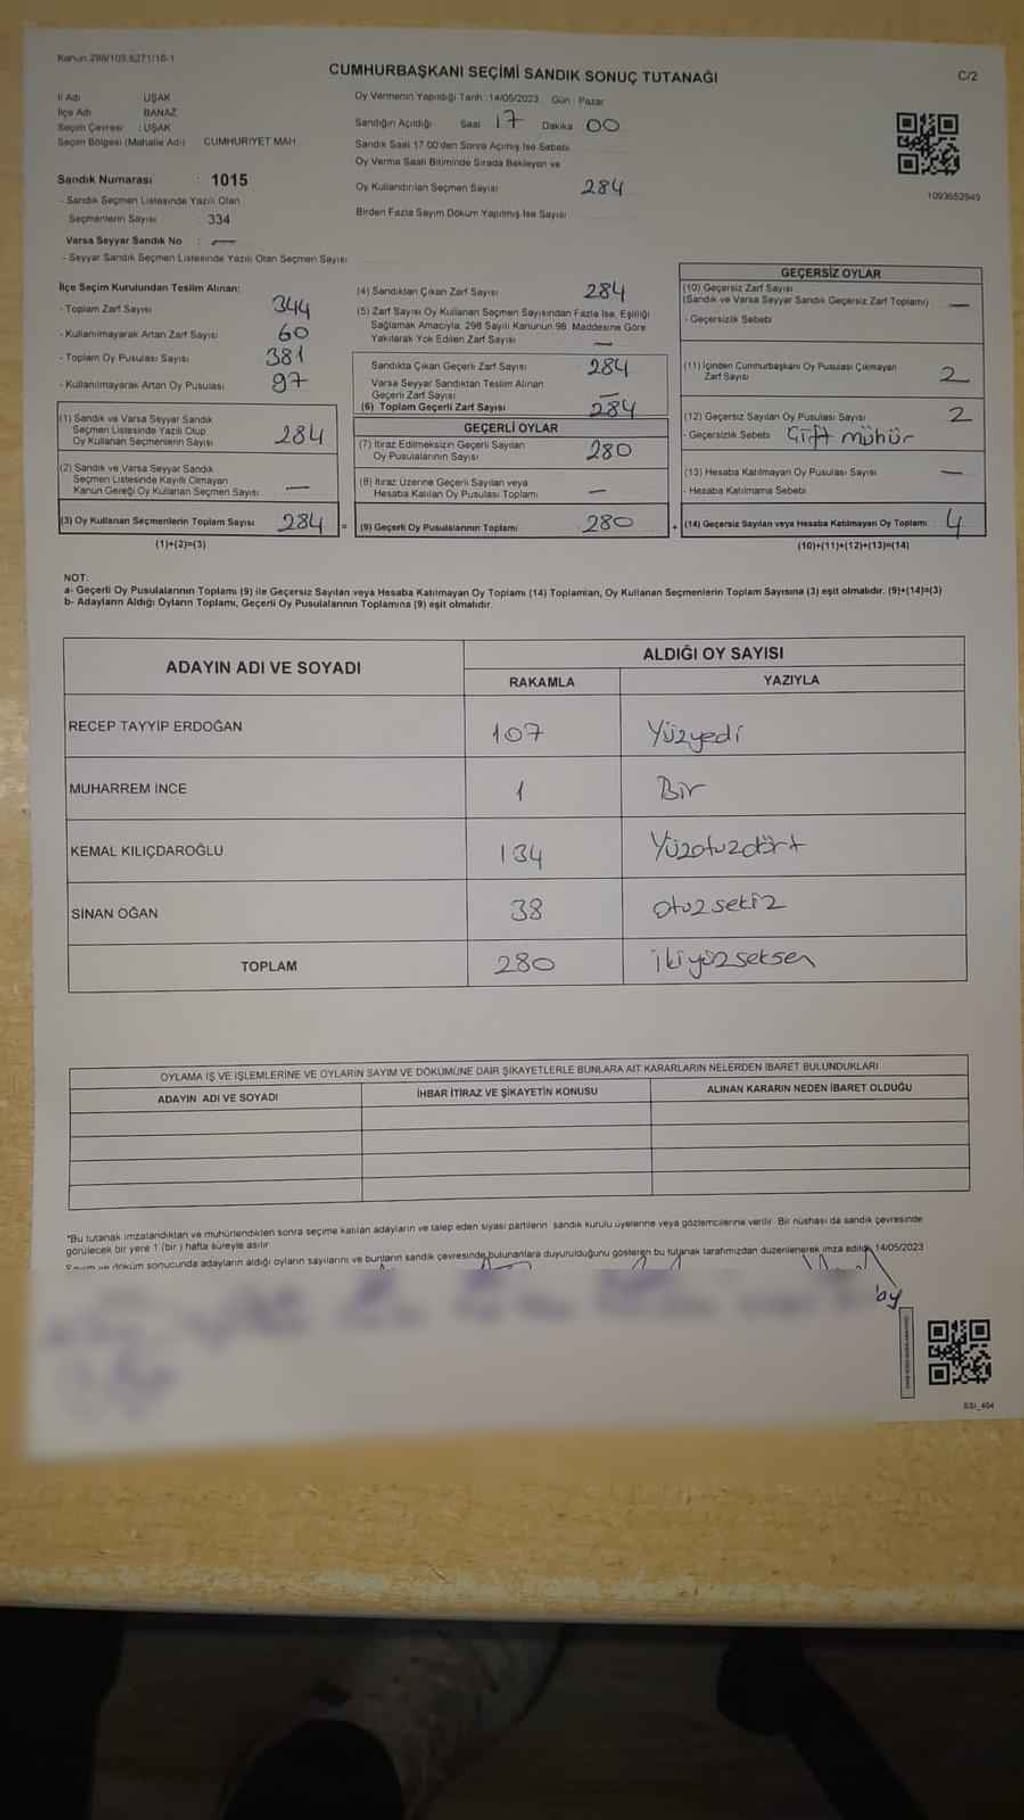 Kanun 298/103,6271/16-1
CUMHURBAŞKANI SEÇİMİ SANDIK SONUÇ TUTANAĞI
C/2
İl Adı : UŞAK
İlçe Adı : BANAZ
Seçim Çevresi : UŞAK
Seçim Bölgesi (Mahalle Adı) : CUMHURİYET MAH.
Sandık Numarası : 1015
- Sandık Seçmen Listesinde Yazılı Olan
Seçmenlerin Sayısı : 334
Varsa Seyyar Sandık No : —
- Seyyar Sandık Seçmen Listesinde Yazılı Olan Seçmen Sayısı
Oy Vermenin Yapıldığı Tarih : 14/05/2023 Gün : Pazar
Sandığın Açıldığı Saat 17 Dakika 00
Sandık Saat 17.00'den Sonra Açılmış İse Sebebi
Oy Verme Saati Bitiminde Sırada Bekleyen ve
Oy Kullandırılan Seçmen Sayısı 284
Birden Fazla Sayım Döküm Yapılmış İse Sayısı
1093652949
İlçe Seçim Kurulundan Teslim Alınan:
- Toplam Zarf Sayısı 344
- Kullanılmayarak Artan Zarf Sayısı 60
- Toplam Oy Pusulası Sayısı 381
- Kullanılmayarak Artan Oy Pusulası 97
(1) Sandık ve Varsa Seyyar Sandık
Seçmen Listesinde Yazılı Olup
Oy Kullanan Seçmenlerin Sayısı 284
(2) Sandık ve Varsa Seyyar Sandık
Seçmen Listesinde Kayıtlı Olmayan
Kanun Gereği Oy Kullanan Seçmen Sayısı —
(3) Oy Kullanan Seçmenlerin Toplam Sayısı 284
(1)+(2)=(3)
(4) Sandıktan Çıkan Zarf Sayısı 284
(5) Zarf Sayısı Oy Kullanan Seçmen Sayısından Fazla İse, Eşitliği
Sağlamak Amacıyla, 298 Sayılı Kanunun 98. Maddesine Göre
Yakılarak Yok Edilen Zarf Sayısı —
Sandıkta Çıkan Geçerli Zarf Sayısı 284
Varsa Seyyar Sandıktan Teslim Alınan
Geçerli Zarf Sayısı —
(6) Toplam Geçerli Zarf Sayısı 284
GEÇERLİ OYLAR
(7) İtiraz Edilmeksizin Geçerli Sayılan
Oy Pusulalarının Sayısı 280
(8) İtiraz Üzerine Geçerli Sayılan veya
Hesaba Katılan Oy Pusulası Toplamı —
= (9) Geçerli Oy Pusulalarının Toplamı 280
GEÇERSİZ OYLAR
(10) Geçersiz Zarf Sayısı
(Sandık ve Varsa Seyyar Sandık Geçersiz Zarf Toplamı) —
- Geçersizlik Sebebi
(11) İçinden Cumhurbaşkanı Oy Pusulası Çıkmayan
Zarf Sayısı 2
(12) Geçersiz Sayılan Oy Pusulası Sayısı 2
- Geçersizlik Sebebi Çift mühür
(13) Hesaba Katılmayan Oy Pusulası Sayısı —
- Hesaba Katılmama Sebebi
+ (14) Geçersiz Sayılan veya Hesaba Katılmayan Oy Toplamı 4
(10)+(11)+(12)+(13)=(14)
NOT:
a- Geçerli Oy Pusulalarının Toplamı (9) ile Geçersiz Sayılan veya Hesaba Katılmayan Oy Toplamı (14) Toplamları, Oy Kullanan Seçmenlerin Toplam Sayısına (3) eşit olmalıdır. (9)+(14)=(3)
b- Adayların Aldığı Oyların Toplamı, Geçerli Oy Pusulalarının Toplamına (9) eşit olmalıdır.
ADAYIN ADI VE SOYADI
ALDIĞI OY SAYISI
RAKAMLA YAZIYLA
RECEP TAYYİP ERDOĞAN 107 Yüzyedi
MUHARREM İNCE 1 Bir
KEMAL KILIÇDAROĞLU 134 Yüzotuzdört
SİNAN OĞAN 38 otuzsekiz
TOPLAM 280 ikiyüzseksen
OYLAMA İŞ VE İŞLEMLERİNE VE OYLARIN SAYIM VE DÖKÜMÜNE DAİR ŞİKAYETLERLE BUNLARA AİT KARARLARIN NELERDEN İBARET BULUNDUKLARI
ADAYIN ADI VE SOYADI İHBAR İTİRAZ VE ŞİKAYETİN KONUSU ALINAN KARARIN NEDEN İBARET OLDUĞU
*Bu tutanak imzalandıktan ve mühürlendikten sonra seçime katılan adayların ve talep eden siyasi partilerin sandık kurulu üyelerine veya gözlemcilerine verilir. Bir nüshası da sandık çevresinde
görülecek bir yere 1 (bir) hafta süreyle asılır.
Sayım ve döküm sonucunda adayların aldığı oyların sayılarını ve bunların sandık çevresinde bulunanlara duyurulduğunu gösteren bu tutanak tarafımızdan düzenlenerek imza edildi. 14/05/2023